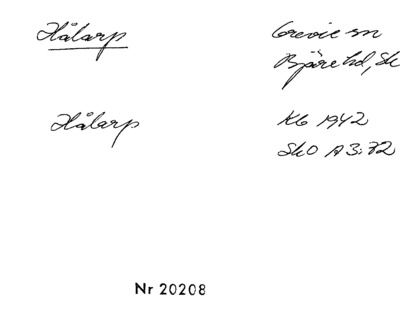 Hålarp Grevie sn
Bjäre hd, Sk
Hålarp Kb 1942
SkO A3:72
Nr 20208